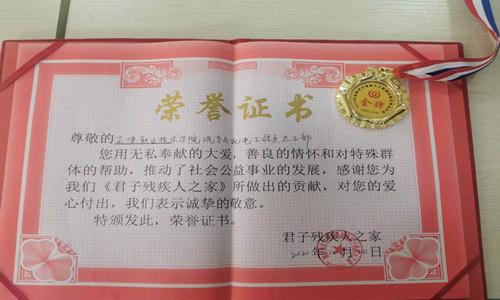 荣誉证书
金牌
尊敬的正德职业技术学院汽车与机电工程系志工部
您用无私奉献的大爱，善良的情怀和对特殊群
体的帮助，推动了社会公益事业的发展，感谢您为
我们《君子残疾人之家》所做出的贡献，对您的爱
心付出，我们表示诚挚的敬意。
特颁发此，荣誉证书。
君子残疾人之家
2020年 月 日